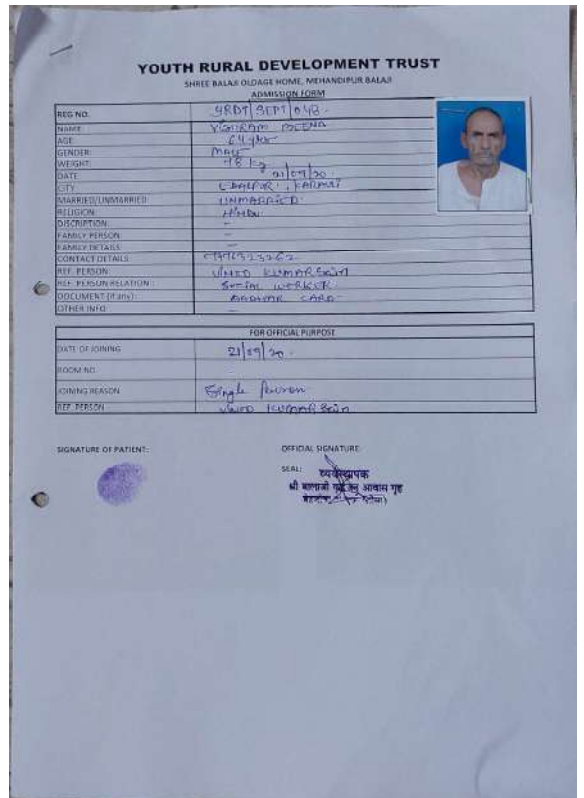 YOUTH RURAL DEVELOPMENT TRUST
SHREE BALAJI OLDAGE HOME, MEHANDIPUR BALAJI
ADMISSION FORM
REG NO. YRDT/SEPT/043.
NAME MEENA
AGE 64
GENDER: MALE
WEIGHT: 48 kg
DATE 21/09/20.
CITY
MARRIED/UNMARRIED UNMARRIED
RELIGION: HINDU
DISCRIPTION: -
FAMILY PERSON: -
FAMILY DETAILS -
CONTACT DETAILS
REF. PERSON VINOD KUMAR SAIN
REF. PERSON RELATION: SOCIAL WORKER.
DOCUMENT (if any): AADHAR CARD
OTHER INFO -
FOR OFFICIAL PURPOSE
DATE OF JOINING 21/09/20.
ROOM NO.
JOINING REASON Single Person
REF. PERSON VINOD KUMAR SAIN
SIGNATURE OF PATIENT: OFFICIAL SIGNATURE:
SEAL: व्यवस्थापक
श्री बालाजी आवास गृह